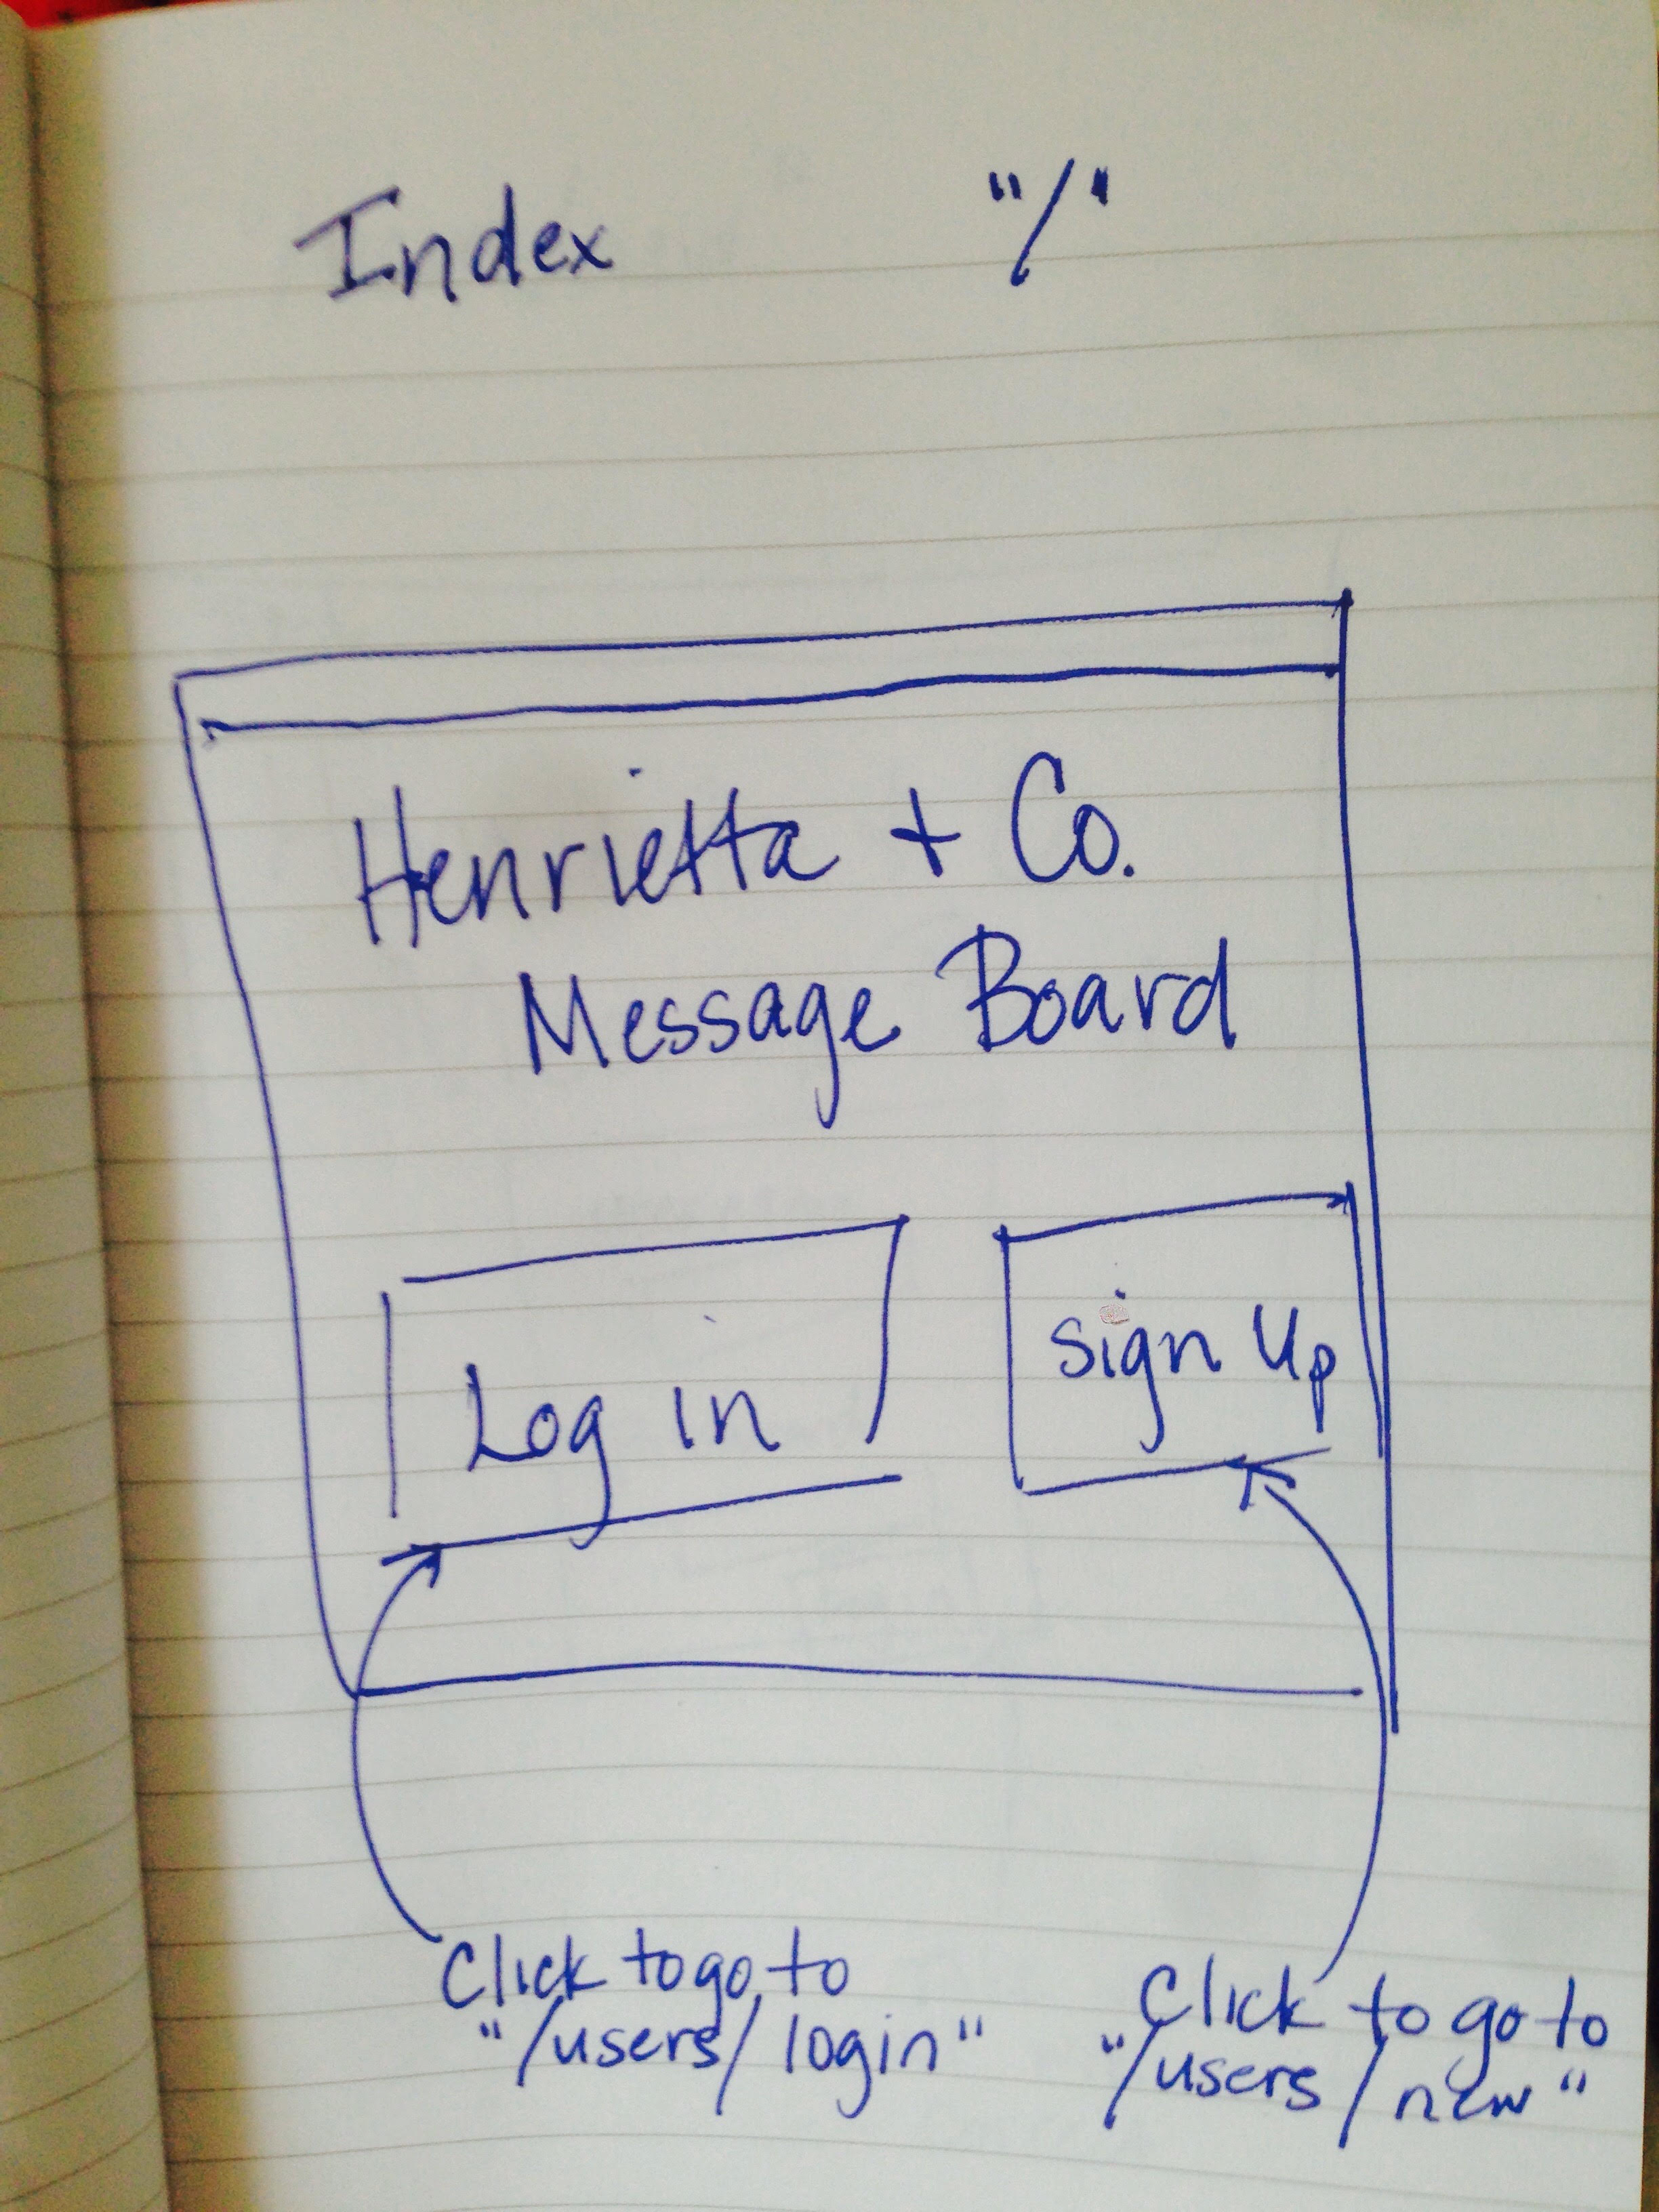 Index "/"
Henrietta + Co.
Message Board
Log in
sign Up
Click to go to
"/users/login"
Click to go to
"/users/new"